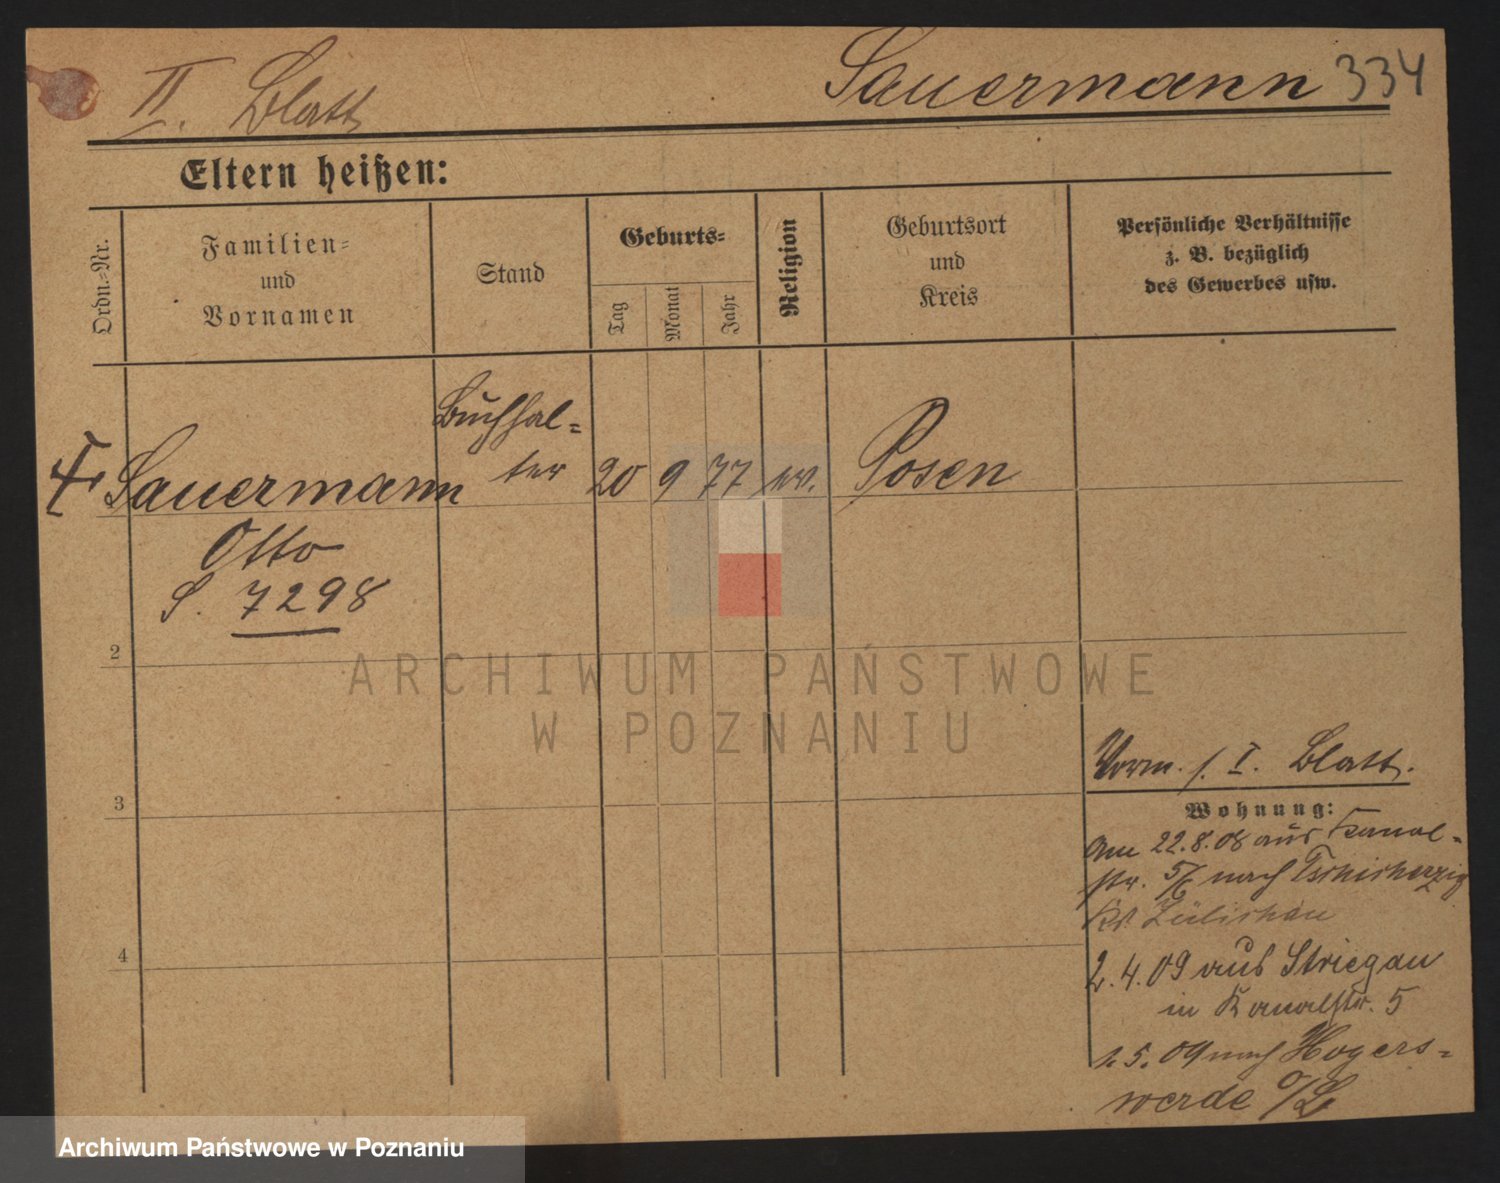 II. Blatt
Sauermann 334
Eltern heißen:
Ordn.=Nr.
Familien=
und
Vornamen
Stand
Geburts=
Tag
Monat
Jahr
Religion
Geburtsort
und
Kreis
Persönliche Verhältnisse
z. B. bezüglich
des Gewerbes usw.
Sauermann
Otto
S. 7298
Buchhal=
ter
20 9 77 ev.
Posen
2
3
4
Vorm. s. I. Blatt.
Wohnung:
Am 22.8.08 aus Kanal=
str. 5/6 nach Tschicherzig
Kr. Zülichau
2.4.09 aus Striegau
in Kanalstr. 5
1.5.09 nach Hoyers=
werde O/L
ARCHIWUM PAŃSTWOWE
W POZNANIU
Archiwum Państwowe w Poznaniu